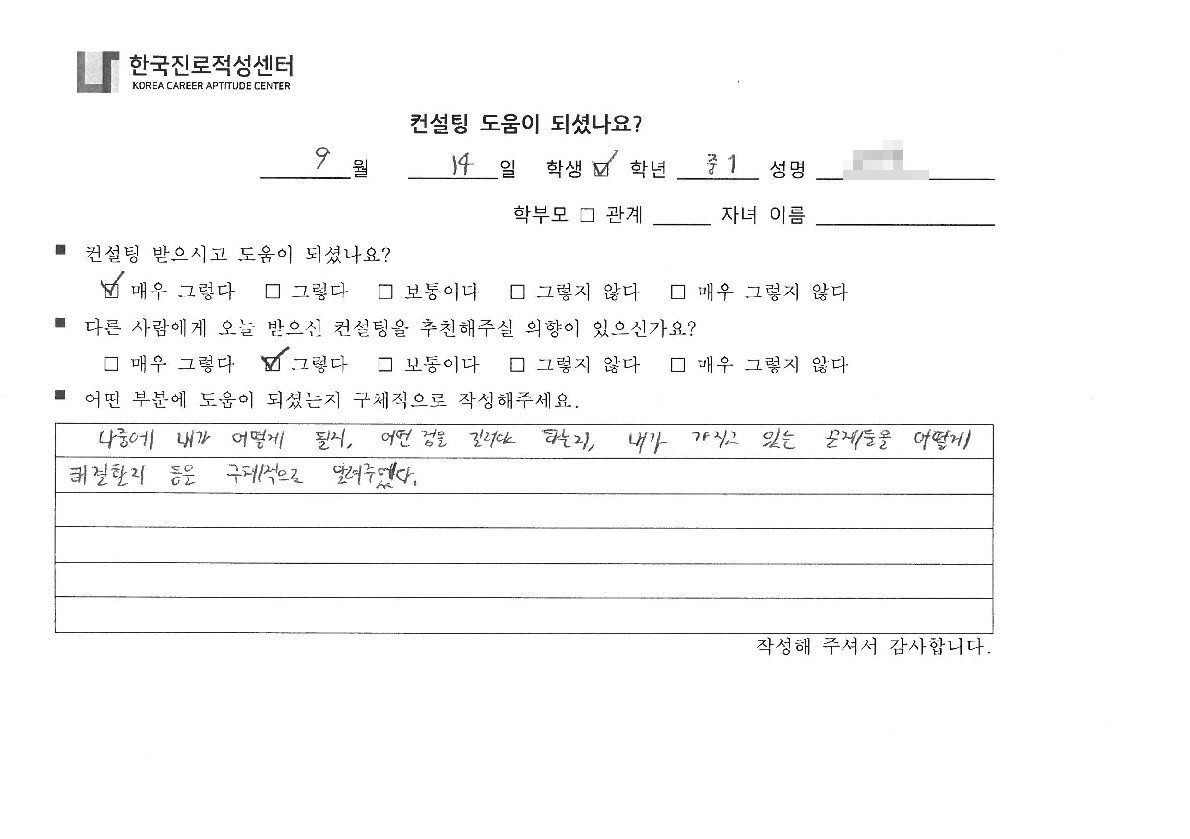 한국진로적성센터
KOREA CAREER APTITUDE CENTER
컨설팅 도움이 되셨나요?
9 월 14 일 학생 ☑ 학년 중1 성명
학부모 □ 관계 자녀 이름
■ 컨설팅 받으시고 도움이 되셨나요?
☑ 매우 그렇다 □ 그렇다 □ 보통이다 □ 그렇지 않다 □ 매우 그렇지 않다
■ 다른 사람에게 오늘 받으신 컨설팅을 추천해주실 의향이 있으신가요?
□ 매우 그렇다 ☑ 그렇다 □ 보통이다 □ 그렇지 않다 □ 매우 그렇지 않다
■ 어떤 부분에 도움이 되셨는지 구체적으로 작성해주세요.
나중에 내가 어떻게 될지, 어떤 점을 길러야 하는지, 내가 가지고 있는 문제들을 어떻게
해결할지 등을 구체적으로 알려주었다.
작성해 주셔서 감사합니다.